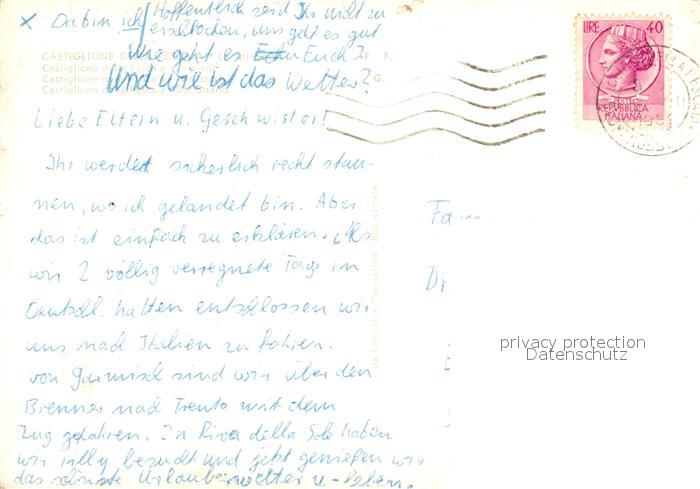 x Da bin ich / Hoffentlich seid Ihr nicht zu
erschrocken, uns geht es gut.
Wie geht es Euch?
Und wie ist das Wetter?
CASTIGLIONE D
Castiglione
Castiglione
Castiglione
Liebe Eltern u. Geschwister!
Ihr werdet sicherlich recht stau-
nen, wo ich gelandet bin. Aber
das ist einfach zu erklären. Als
wir 2 völlig verregnete Tage in
Deutschl. hatten entschlossen wir
uns nach Italien zu fahren.
von Garmisch sind wir über den
Brenner nach Trento mit dem
Zug gefahren. In Riva della Sole haben
wir Billy besucht und jetzt genießen wir
das schönste Urlaubswetter u. -leben.
LIRE 40
REPUBBLICA
ITALIANA
Fa
privacy protection
Datenschutz